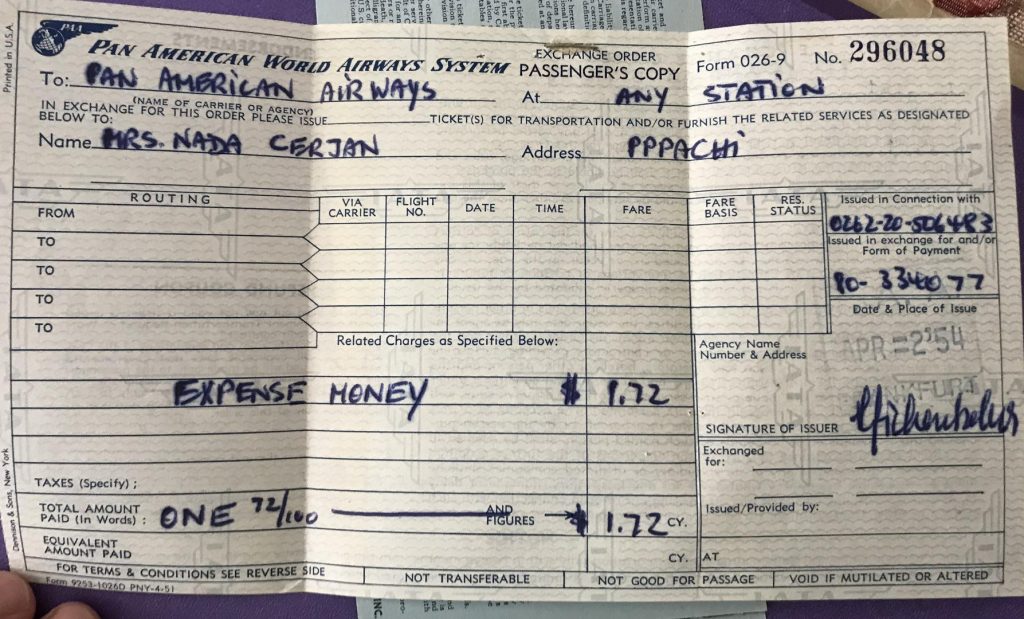 PAA
PAN AMERICAN WORLD AIRWAYS SYSTEM
EXCHANGE ORDER
PASSENGER'S COPY
Form 026-9 No. 296048
Printed in U.S.A.
To: PAN AMERICAN AIRWAYS At ANY STATION
(NAME OF CARRIER OR AGENCY)
IN EXCHANGE FOR THIS ORDER PLEASE ISSUE TICKET(S) FOR TRANSPORTATION AND/OR FURNISH THE RELATED SERVICES AS DESIGNATED
BELOW TO:
Name MRS. NADA CERJAN Address PPPACHI
ROUTING VIA CARRIER FLIGHT NO. DATE TIME FARE FARE BASIS RES. STATUS
Issued in Connection with
0262-20-506483
Issued in exchange for and/or
Form of Payment
PO-334077
Date & Place of Issue
FROM
TO
TO
TO
TO
Related Charges as Specified Below:
Agency Name
Number & Address
APR =2'54
EXPENSE MONEY $ 1.72
SIGNATURE OF ISSUER
Exchanged
for:
TAXES (Specify) ;
Issued/Provided by:
TOTAL AMOUNT
PAID (In Words) : ONE 72/100 AND FIGURES $ 1.72 CY.
EQUIVALENT
AMOUNT PAID CY. AT
FOR TERMS & CONDITIONS SEE REVERSE SIDE NOT TRANSFERABLE NOT GOOD FOR PASSAGE VOID IF MUTILATED OR ALTERED
Form 9253-1026D PNY-4-51
Dennison & Sons, New York
INC.